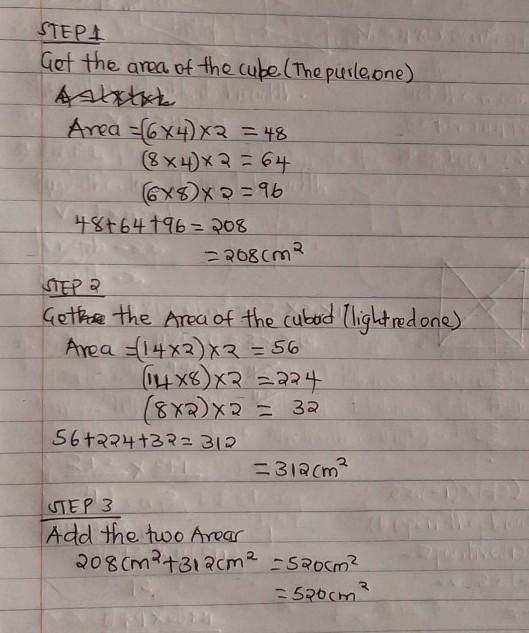 STEP 1
Get the area of the cube (The purle one)
Area = (6×4)×2 = 48
(8×4)×2 = 64
(6×8)×2 = 96
48+64+96 = 208
= 208cm²
STEP 2
Get the Area of the cuboid (light red one)
Area = (14×2)×2 = 56
(14×8)×2 = 224
(8×2)×2 = 32
56+224+32 = 312
= 312cm²
STEP 3
Add the two Arear
208cm²+312cm² = 520cm²
= 520cm²